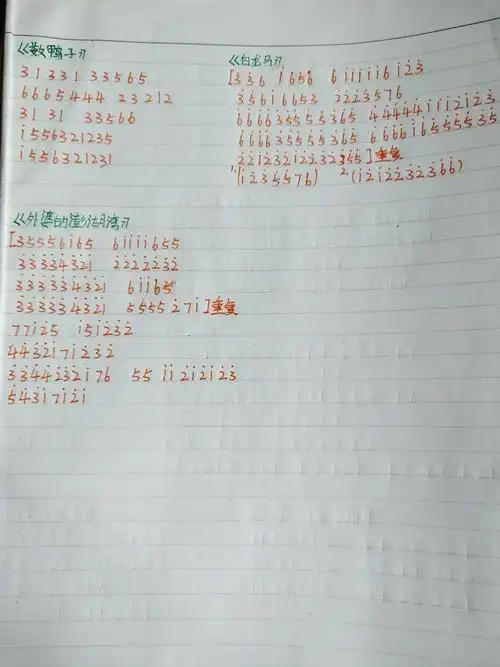 《数鸭子》
3 1 3 3 1 3 3 5 6 5
6 6 6 5 4 4 4 2 3 2 1 2
3 1 3 1 3 3 5 6 6
i̇ 5 5 6 3 2 1 2 3 5
i̇ 5 5 6 3 2 1 2 3 1
《白龙马》
[3̇ 3̇ 6 i̇ 6 5 6 6 i̇ i̇ i̇ i̇ i̇ 6 i̇ 2̇ 3̇
3̇ 5̇ 6 i̇ 6 6 5 3 2̇ 2̇ 2̇ 3̇ 5 7 6
6̇ 6̇ 6̇ 6̇ 3̇ 5̇ 5̇ 5̇ 5̇ 3̇ 6̇ 5̇ 4̇ 4̇ 4̇ 4̇ 4̇ i̇ i̇ i̇ 2̇ i̇ 2̇ 3̇
6̇ 6̇ 6̇ 6̇ 3̇ 5̇ 5̇ 5̇ 5̇ 3̇ 6̇ 5̇ 6̇ 6̇ 6̇ 6̇ i̇ 6̇ 5̇ 5̇ 5̇ 5̇ 3̇ 5̇
2̇ 2̇ i̇ 2̇ 3̇ 2̇ i̇ 2̇ 2̇ 3̇ 2̇ 3̇ 5̇ 5̇] 重复
1.(i̇ 2̇ 3̇ 5̇ 5 7 6) 2.(i̇ 2̇ i̇ 2̇ 2̇ 3̇ 2̇ 3̇ 6̇ 6̇)
《外婆的澎湖湾》
[3 5 5 5 6 i̇ 6 5 6 i̇ i̇ i̇ i̇ 6 5 5
3̇ 3̇ 3̇ 3̇ 4̇ 3̇ 2̇ i̇ 2̇ 2̇ 2̇ 2̇ 2̇ 3̇ 2̇
3̇ 3̇ 3̇ 3̇ 3̇ 4̇ 3̇ 2̇ i̇ 6 i̇ i̇ 6 5
3̇ 3̇ 3̇ 3̇ 3̇ 4̇ 3̇ 2̇ i̇ 5 5 5 5 2̇ 7 i̇] 重复
7 7 i̇ 2̇ 5 i̇ 5 i̇ 2̇ 3̇ 2̇
4̇ 4̇ 3̇ 2̇ i̇ 7 i̇ 2̇ 3̇ 2̇
3̇ 3̇ 4̇ 4̇ 2̇ 3̇ 2̇ i̇ 7 6 5 5 i̇ i̇ 2̇ i̇ 2̇ i̇ 2̇ 3̇
5̇ 4̇ 3̇ i̇ 7 i̇ 2̇ i̇